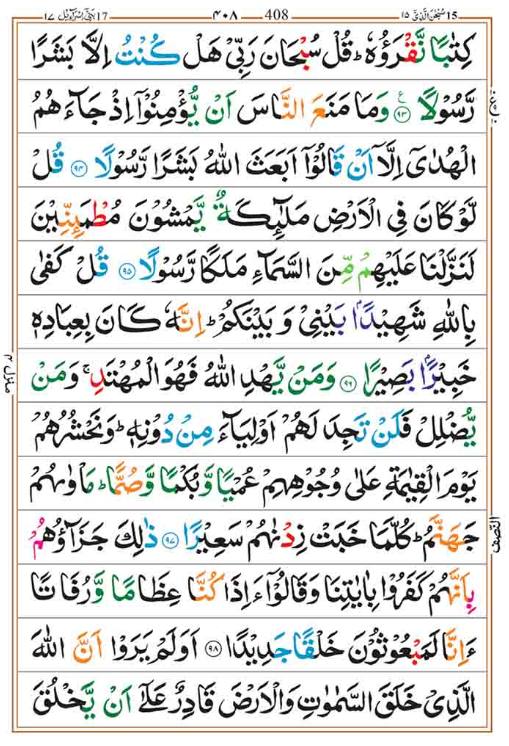 15 سُبْحٰنَ الَّذِيْٓ ١٥ 408 ۴۰۸ 17 بَنِيْٓ اِسْرَآءِيْل ١٧
كِتٰبًا نَّقْرَؤُهٗ ؕ قُلْ سُبْحَانَ رَبِّيْ هَلْ كُنْتُ اِلَّا بَشَرًا
رَّسُوْلًا ﴿۹۳﴾ ع وَمَا مَنَعَ النَّاسَ اَنْ يُّؤْمِنُوْٓا اِذْ جَآءَهُمُ
الْهُدٰٓى اِلَّآ اَنْ قَالُوْٓا اَبَعَثَ اللّٰهُ بَشَرًا رَّسُوْلًا ﴿۹۴﴾ قُلْ
لَّوْ كَانَ فِي الْاَرْضِ مَلٰٓئِكَةٌ يَّمْشُوْنَ مُطْمَئِنِّيْنَ
لَنَزَّلْنَا عَلَيْهِمْ مِّنَ السَّمَآءِ مَلَكًا رَّسُوْلًا ﴿۹۵﴾ قُلْ كَفٰى
بِاللّٰهِ شَهِيْدًۢا بَيْنِيْ وَ بَيْنَكُمْ ؕ اِنَّهٗ كَانَ بِعِبَادِهٖ
خَبِيْرًۢا بَصِيْرًا ﴿۹۶﴾ وَمَنْ يَّهْدِ اللّٰهُ فَهُوَ الْمُهْتَدِ ۚ وَمَنْ
يُّضْلِلْ فَلَنْ تَجِدَ لَهُمْ اَوْلِيَآءَ مِنْ دُوْنِهٖ ؕ وَنَحْشُرُهُمْ
يَوْمَ الْقِيٰمَةِ عَلٰى وُجُوْهِهِمْ عُمْيًا وَّبُكْمًا وَّصُمًّا ؕ مَاْوٰىهُمْ
جَهَنَّمُ ؕ كُلَّمَا خَبَتْ زِدْنٰهُمْ سَعِيْرًا ﴿۹۷﴾ ذٰلِكَ جَزَآؤُهُمْ
بِاَنَّهُمْ كَفَرُوْا بِاٰيٰتِنَا وَقَالُوْٓا ءَاِذَا كُنَّا عِظَامًا وَّرُفَاتًا
ءَاِنَّا لَمَبْعُوْثُوْنَ خَلْقًا جَدِيْدًا ﴿۹۸﴾ اَوَلَمْ يَرَوْا اَنَّ اللّٰهَ
الَّذِيْ خَلَقَ السَّمٰوٰتِ وَالْاَرْضَ قَادِرٌ عَلٰٓى اَنْ يَّخْلُقَ
النصف
منزل ۴